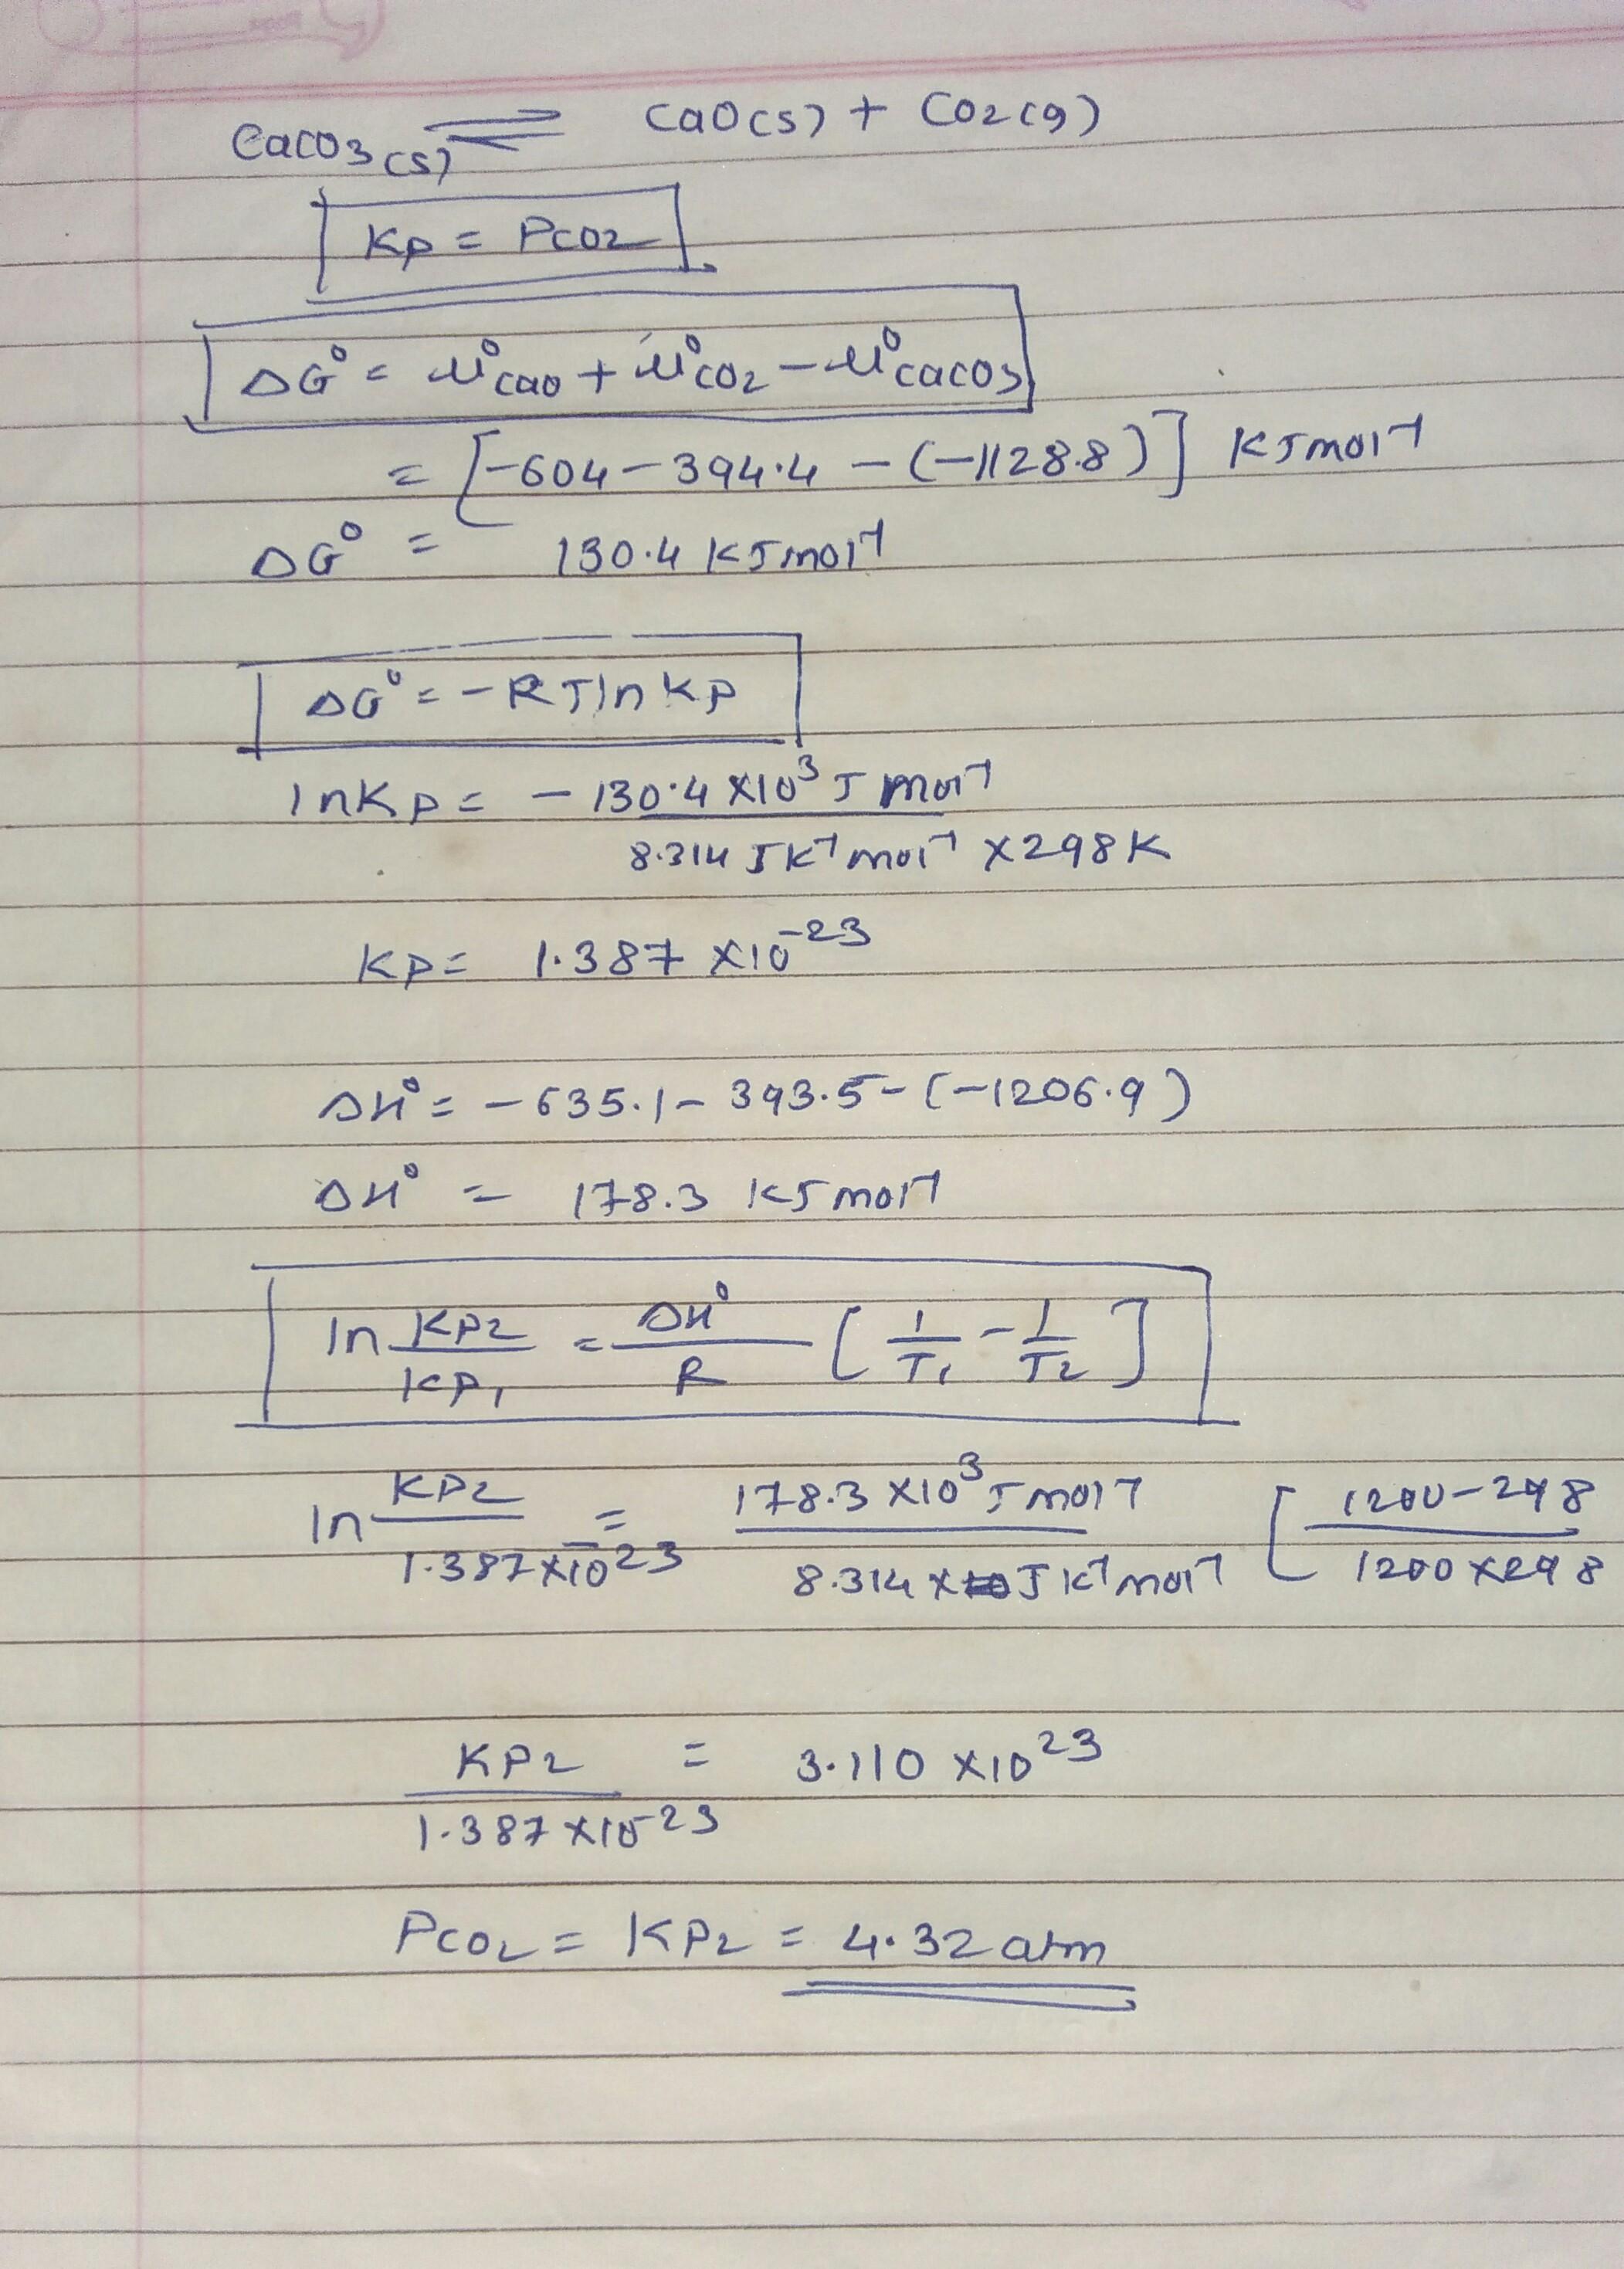 CaCO3(s) ⇌ CaO(s) + CO2(g)
Kp = PCO2
ΔG° = μ°CaO + μ°CO2 - μ°CaCO3
= [-604 - 394.4 - (-1128.8)] KJ mol⁻¹
ΔG° = 130.4 KJ mol⁻¹
ΔG° = -RT ln Kp
ln Kp = -130.4 × 10³ J mol⁻¹
8.314 J K⁻¹ mol⁻¹ × 298 K
Kp = 1.387 × 10⁻²³
ΔH° = -635.1 - 393.5 - (-1206.9)
ΔH° = 178.3 KJ mol⁻¹
ln KP2/KP1 = ΔH°/R [1/T1 - 1/T2]
ln KP2 = 178.3 × 10³ J mol⁻¹ [1200 - 298
1.387 × 10⁻²³ 8.314 × J K⁻¹ mol⁻¹ 1200 × 298
KP2 = 3.110 × 10²³
1.387 × 10⁻²³
PCO2 = KP2 = 4.32 atm